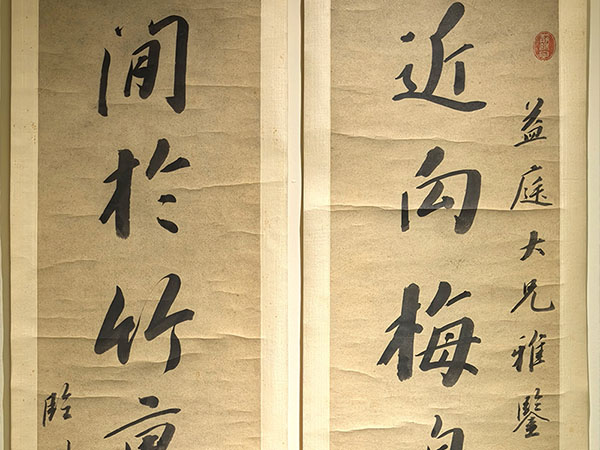 益庭大兄雅鑒
近向梅
閒於竹